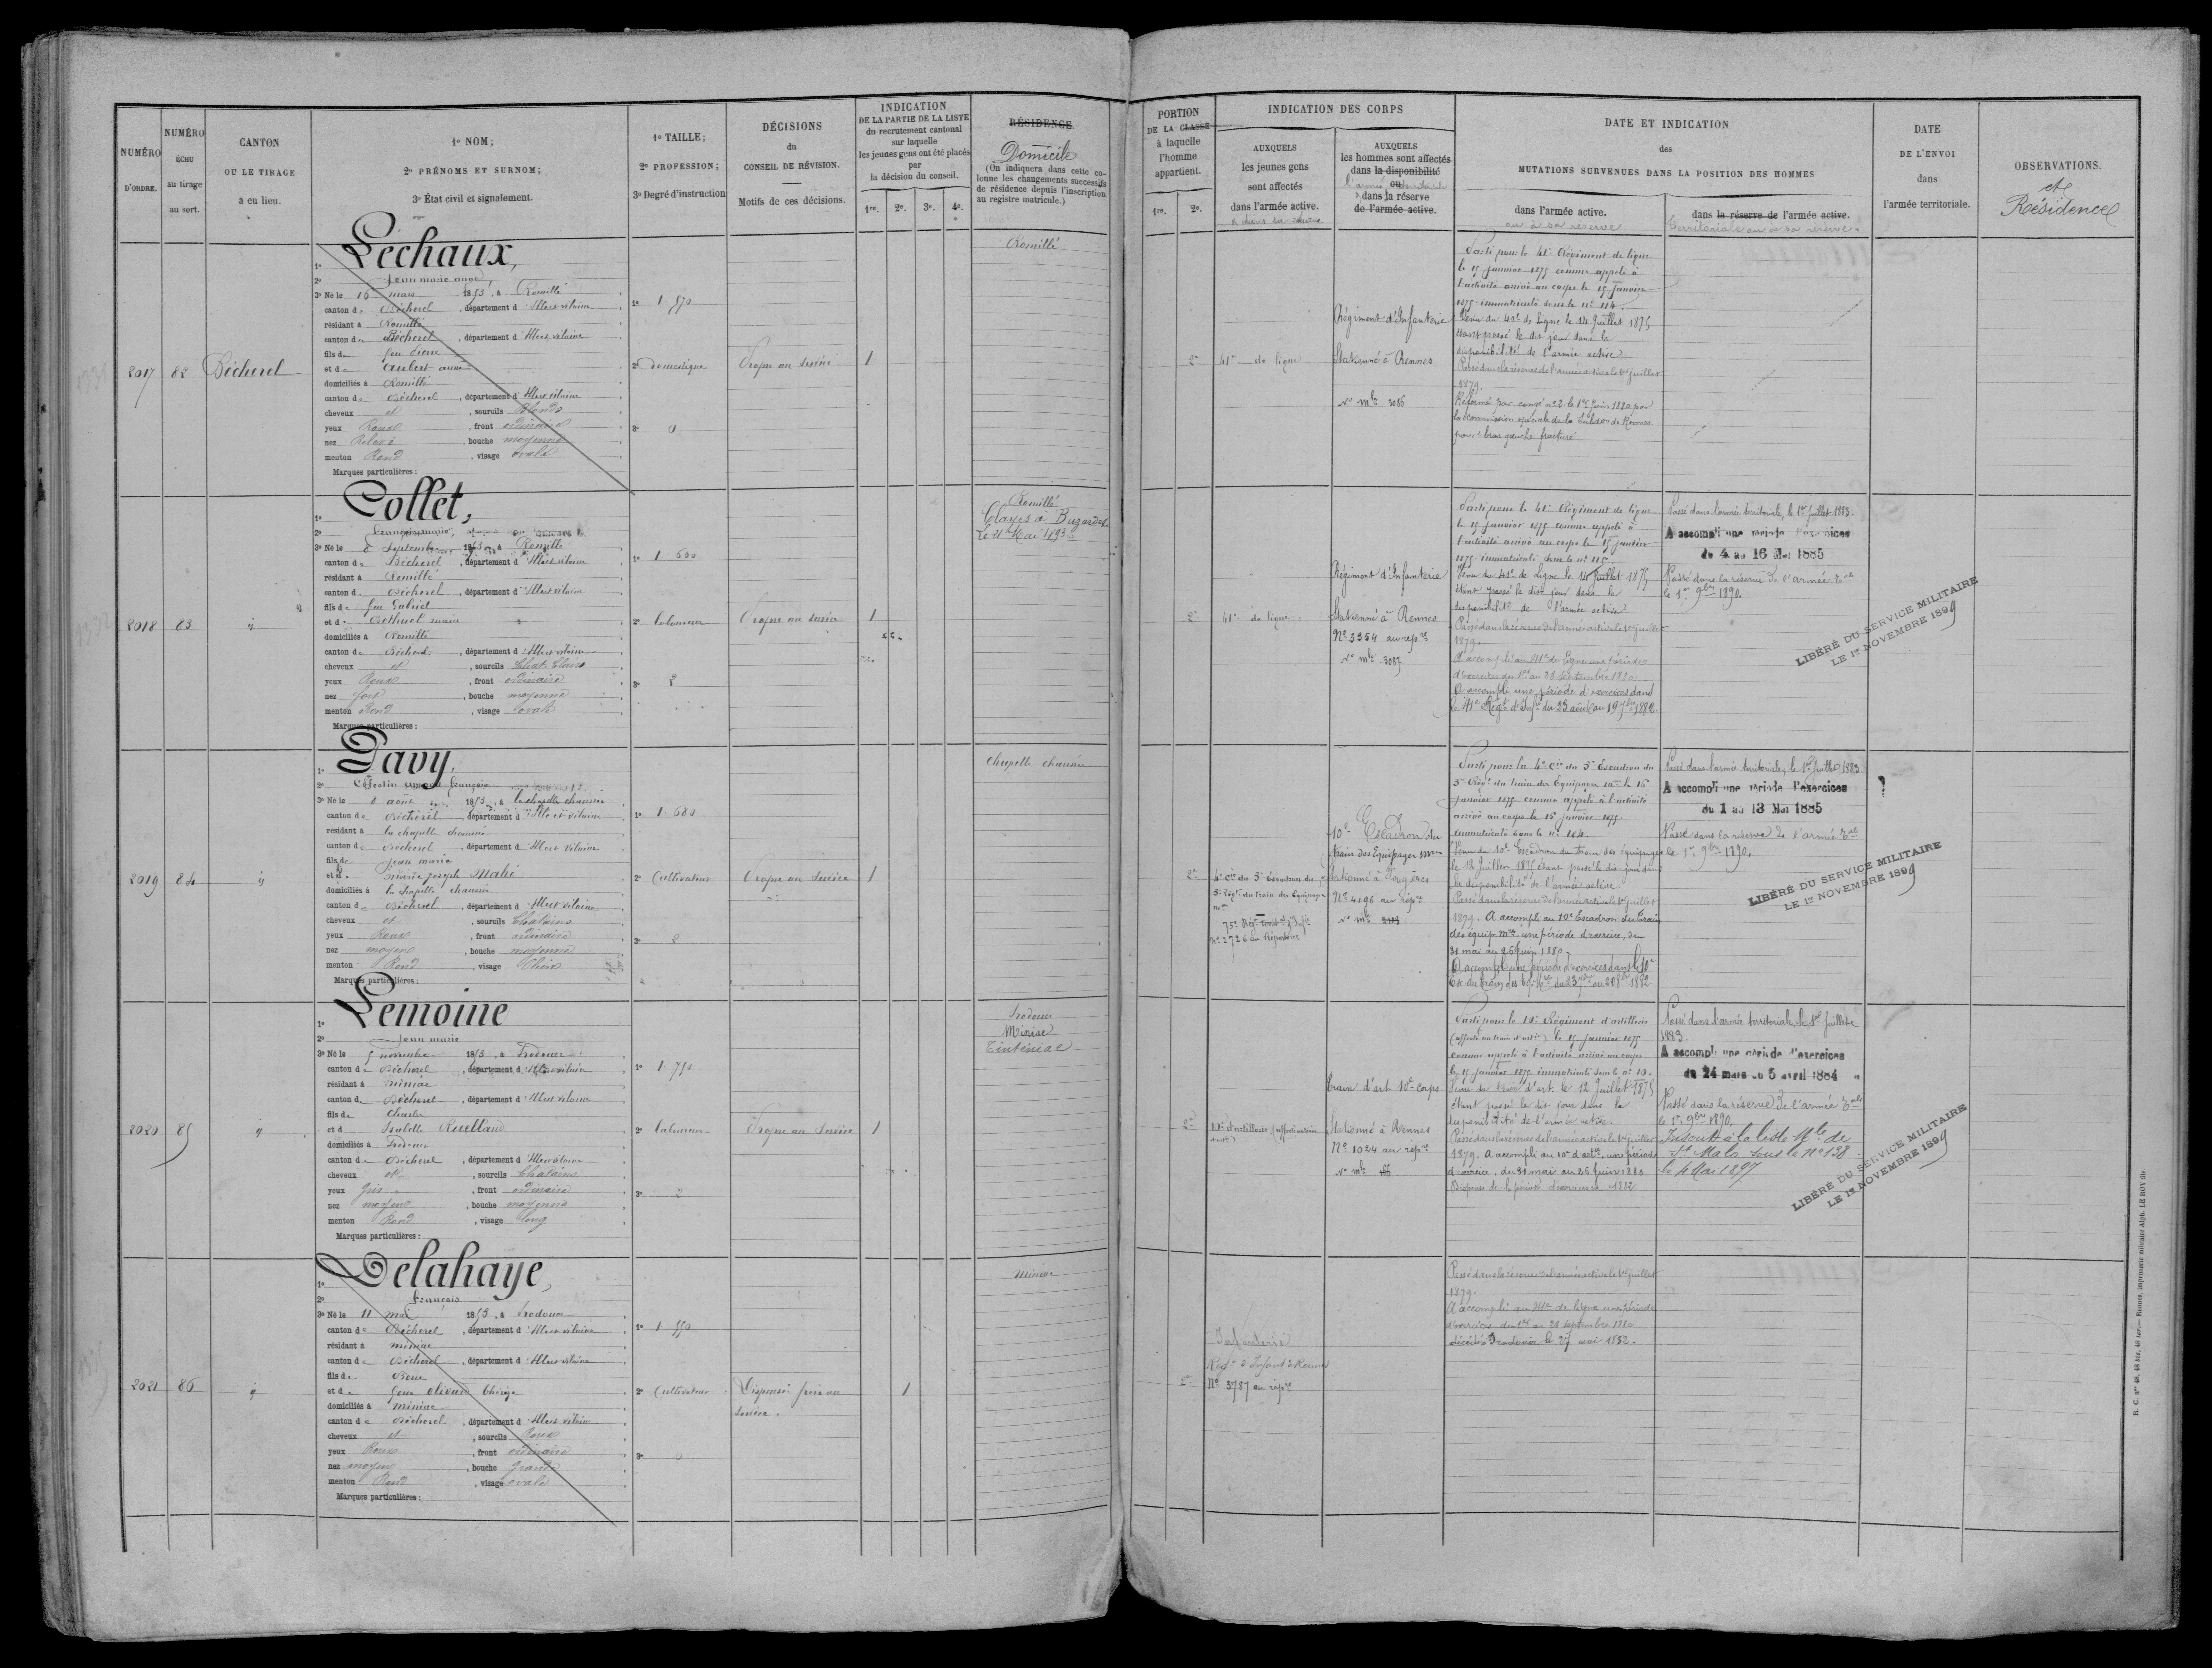 NUMÉRO
D'ORDRE.
NUMÉRO
ÉCHU
au tirage
au sort.
CANTON
OU LE TIRAGE
a eu lieu.
1º NOM;
2º PRÉNOMS ET SURNOM;
3º État civil et signalement.
1º TAILLE;
2º PROFESSION;
3º Degré d'instruction
DÉCISIONS
du
CONSEIL DE RÉVISION.
Motifs de ces décisions.
INDICATION
DE LA PARTIE DE LA LISTE
du recrutement cantonal
sur laquelle
les jeunes gens ont été placés
par
la décision du conseil.
1re. 2e. 3e. 4e.
RÉSIDENCE
Domicile
(On indiquera dans cette co-
lonne les changements successifs
de résidence depuis l'inscription
au registre matricule.)
2017
82
Bécherel
Léchaux,
2º Jean marie ange
3º Né le 16 mars 1853, à Romillé
canton de Bécherel, département d'Ille et vilaine
résidant à Romillé
canton de Bécherel, département d'Ille et vilaine
fils de feu Pierre
et de Aubert anne
domiciliés à Romillé
canton de Bécherel, département d'Ille et vilaine
cheveux et, sourcils Blonds
yeux Roux, front ordinaire
nez Relevé, bouche moyenne
menton Rond, visage ovale
Marques particulières:
1º 1. 570
2º Domestique
3º 0
Propre au service
1
Romillé
2018
83
id
Collet,
2º François marie
3º Né le 8 Septembre 1853, à Romillé
canton de Bécherel, département d'Ille et vilaine
résidant à Romillé
canton de Bécherel, département d'Ille et vilaine
fils de feu Gabriel
et de Bethuel marie
domiciliés à Romillé
canton de Bécherel, département d'Ille et vilaine
cheveux et, sourcils Chat. Clairs
yeux Roux, front ordinaire
nez fort, bouche moyenne
menton Rond, visage ovale
Marques particulières:
1º 1. 630
2º laboureur
3º 2
Propre au service
1
Romillé
Clayes à Buzardel
Le 21 Mai 1893
2019
84
id
Davy,
2º Célestin François
3º Né le 8 août 1853, à la chapelle chaussée
canton de Bécherel, département d'Ille et vilaine
résidant à la chapelle chaussée
canton de Bécherel, département d'Ille et vilaine
fils de Jean marie
et de marie joseph Mahé
domiciliés à la chapelle chaussée
canton de Bécherel, département d'Ille et vilaine
cheveux et, sourcils Chatains
yeux Roux, front ordinaire
nez moyen, bouche moyenne
menton Rond, visage plein
Marques particulières:
1º 1. 680
2º Cultivateur
3º 2
Propre au service
1
Chapelle chaussée
2020
85
id
Lemoine
2º Jean marie
3º Né le 5 novembre 1853, à Irodouer
canton de Bécherel, département d'Ille et vilaine
résidant à miniac
canton de Bécherel, département d'Ille et vilaine
fils de Charles
et d Isabelle Rouillaud
domiciliés à Irodouer
canton de Bécherel, département d'Ille et vilaine
cheveux et, sourcils Chatains
yeux gris, front ordinaire
nez moyen, bouche moyenne
menton Rond, visage long
Marques particulières:
1º 1. 750
2º laboureur
3º 2
Propre au service
1
Irodouer
Miniac
Tinténiac
2021
86
id
Delahaye,
2º François
3º Né le 11 mai 1853, à Irodouer
canton de Bécherel, département d'Ille et vilaine
résidant à miniac
canton de Bécherel, département d'Ille et vilaine
fils de Pierre
et de feue Olivard Thérèse
domiciliés à miniac
canton de Bécherel, département d'Ille et vilaine
cheveux et, sourcils Roux
yeux Roux, front ordinaire
nez moyen, bouche grande
menton Rond, visage ovale
Marques particulières:
1º 1. 550
2º Cultivateur
3º 0
Dispensé frère au
service.
1
Miniac
PORTION
DE LA CLASSE
à laquelle
l'homme
appartient.
1re. 2e.
INDICATION DES CORPS
AUXQUELS
les jeunes gens
sont affectés
dans l'armée active.
& dans sa réserve
AUXQUELS
les hommes sont affectés
dans la disponibilité
ou
l'armée territoriale
& dans la réserve
de l'armée active.
DATE ET INDICATION
des
MUTATIONS SURVENUES DANS LA POSITION DES HOMMES
dans l'armée active.
ou à sa réserve
dans la réserve de l'armée active.
territoriale ou à sa réserve.
DATE
DE L'ENVOI
dans
l'armée territoriale.
OBSERVATIONS.
et
Résidence
2e
41e de ligne
Régiment d'Infanterie
Stationné à Rennes
No mle 3056
Parti pour le 41e Régiment de ligne
le 15 janvier 1875 comme appelé à
l'activité arrivé au corps le 15 janvier
1875 immatriculé sous le no 114.
Venu du 41e de Ligne le 14 Juillet 1875
étant passé le dit jour dans la
disponibilité de l'armée active
Passé dans la réserve de l'armée active le 1er juillet
1879.
Réformé par congé no 2 le 1er Juin 1880 par
la commission spéciale de la Subdon de Rennes
pour bras gauche fracturé
2e
41e de ligne
Régiment d'Infanterie
Stationné à Rennes
No 3354 au repre
No mle 3057
Parti pour le 41e Régiment de ligne
le 15 janvier 1875 comme appelé à
l'activité arrivé au corps le 15 janvier
1875 immatriculé sous le no 115.
Venu du 41e de Ligne le 14 Juillet 1875
étant passé le dit jour dans la
disponibilité de l'armée active
Passé dans la réserve de l'armée active le 1er juillet
1879.
A accompli au 41e de ligne une période
d'exercices du 1er au 28 Septembre 1880
A accompli une période d'exercices dans
le 41e Régt d'Infie du 23 août au 19 7bre 1882.
Passé dans l'armée territoriale, le 1er Juillet 1883.
A accompli une période d'exercices
du 4 au 16 Mai 1885
Passé dans la réserve de l'armée Tale
le 1er 9bre 1890.
LIBÉRÉ DU SERVICE MILITAIRE
LE 1er NOVEMBRE 1899
2e
4e Cie du 3e Escadron du
3e Régt du train des Equipages
mres
75e Régt Territal d'Infie
No 2726 au Répertoire
10e Escadron du
train des Equipages mres
stationné à Fougères
No 4196 au repre
No mle
Parti pour la 4e Cie du 3e Escadron du
3e Régt du train des Equipages mres le 16
janvier 1875 comme appelé à l'activité
arrivé au corps le 16 janvier 1875.
immatriculé sous le no 164.
Venu du 10e Escadron du train des équipages
le 12 Juillet 1875 étant passé le dit jour dans
la disponibilité de l'armée active.
Passé dans la réserve de l'armée active le 1er juillet
1879. A accompli au 10e Escadron du train
des équip. mres une période d'exercice, du
31 mai au 26 juin 1880.
A accompli une période d'exercices dans le 10e
Passé dans l'armée territoriale, le 1er Juillet 1883
A accompli une période d'exercices
du 1 au 13 Mai 1885
Passé dans la réserve de l'armée Tale
le 1er 9bre 1890.
?
LIBÉRÉ DU SERVICE MILITAIRE
LE 1er NOVEMBRE 1899
2e
Train d'art 10e corps
Stationné à Rennes
No 1024 au répre
No mle
Parti pour le 10e Régiment d'artillerie
(affecté au train d'artie) le 15 janvier 1875
comme appelé à l'activité arrivé au corps
le 15 janvier 1875. immatriculé sous le no
Venu du train d'art. le 12 Juillet 1875
étant passé le dit jour dans la
disponibilité de l'armée active.
Passé dans la réserve de l'armée active le 1er juillet
1879. A accompli au 10e d'artie, une période
d'exercice, du 31 mai au 26 Juin 1880
Dispensé de la période d'exercices 1882
Passé dans l'armée territoriale, le 1er Juillet
1883.
A accompli une période d'exercices
du 24 mars au 5 avril 1884
Passé dans la réserve de l'armée Tale
le 1er 9bre 1890.
Inscrit à la liste Mle de
St Malo sous le No 138
le 4 Mai 1897
LIBÉRÉ DU SERVICE MILITAIRE
LE 1er NOVEMBRE 1899
2e
Infanterie
Régt d'Infant à Rennes
No 3787 au répre
Passé dans la réserve de l'armée active le 1er juillet
1879.
A accompli au 41e de ligne une période
d'exercices du 1er au 28 septembre 1880
décédé à Irodouer le 27 mai 1882.
R. C. nos 48, 48 bis, 48 ter.— Rennes, imprimerie militaire Alph. LE ROY fils